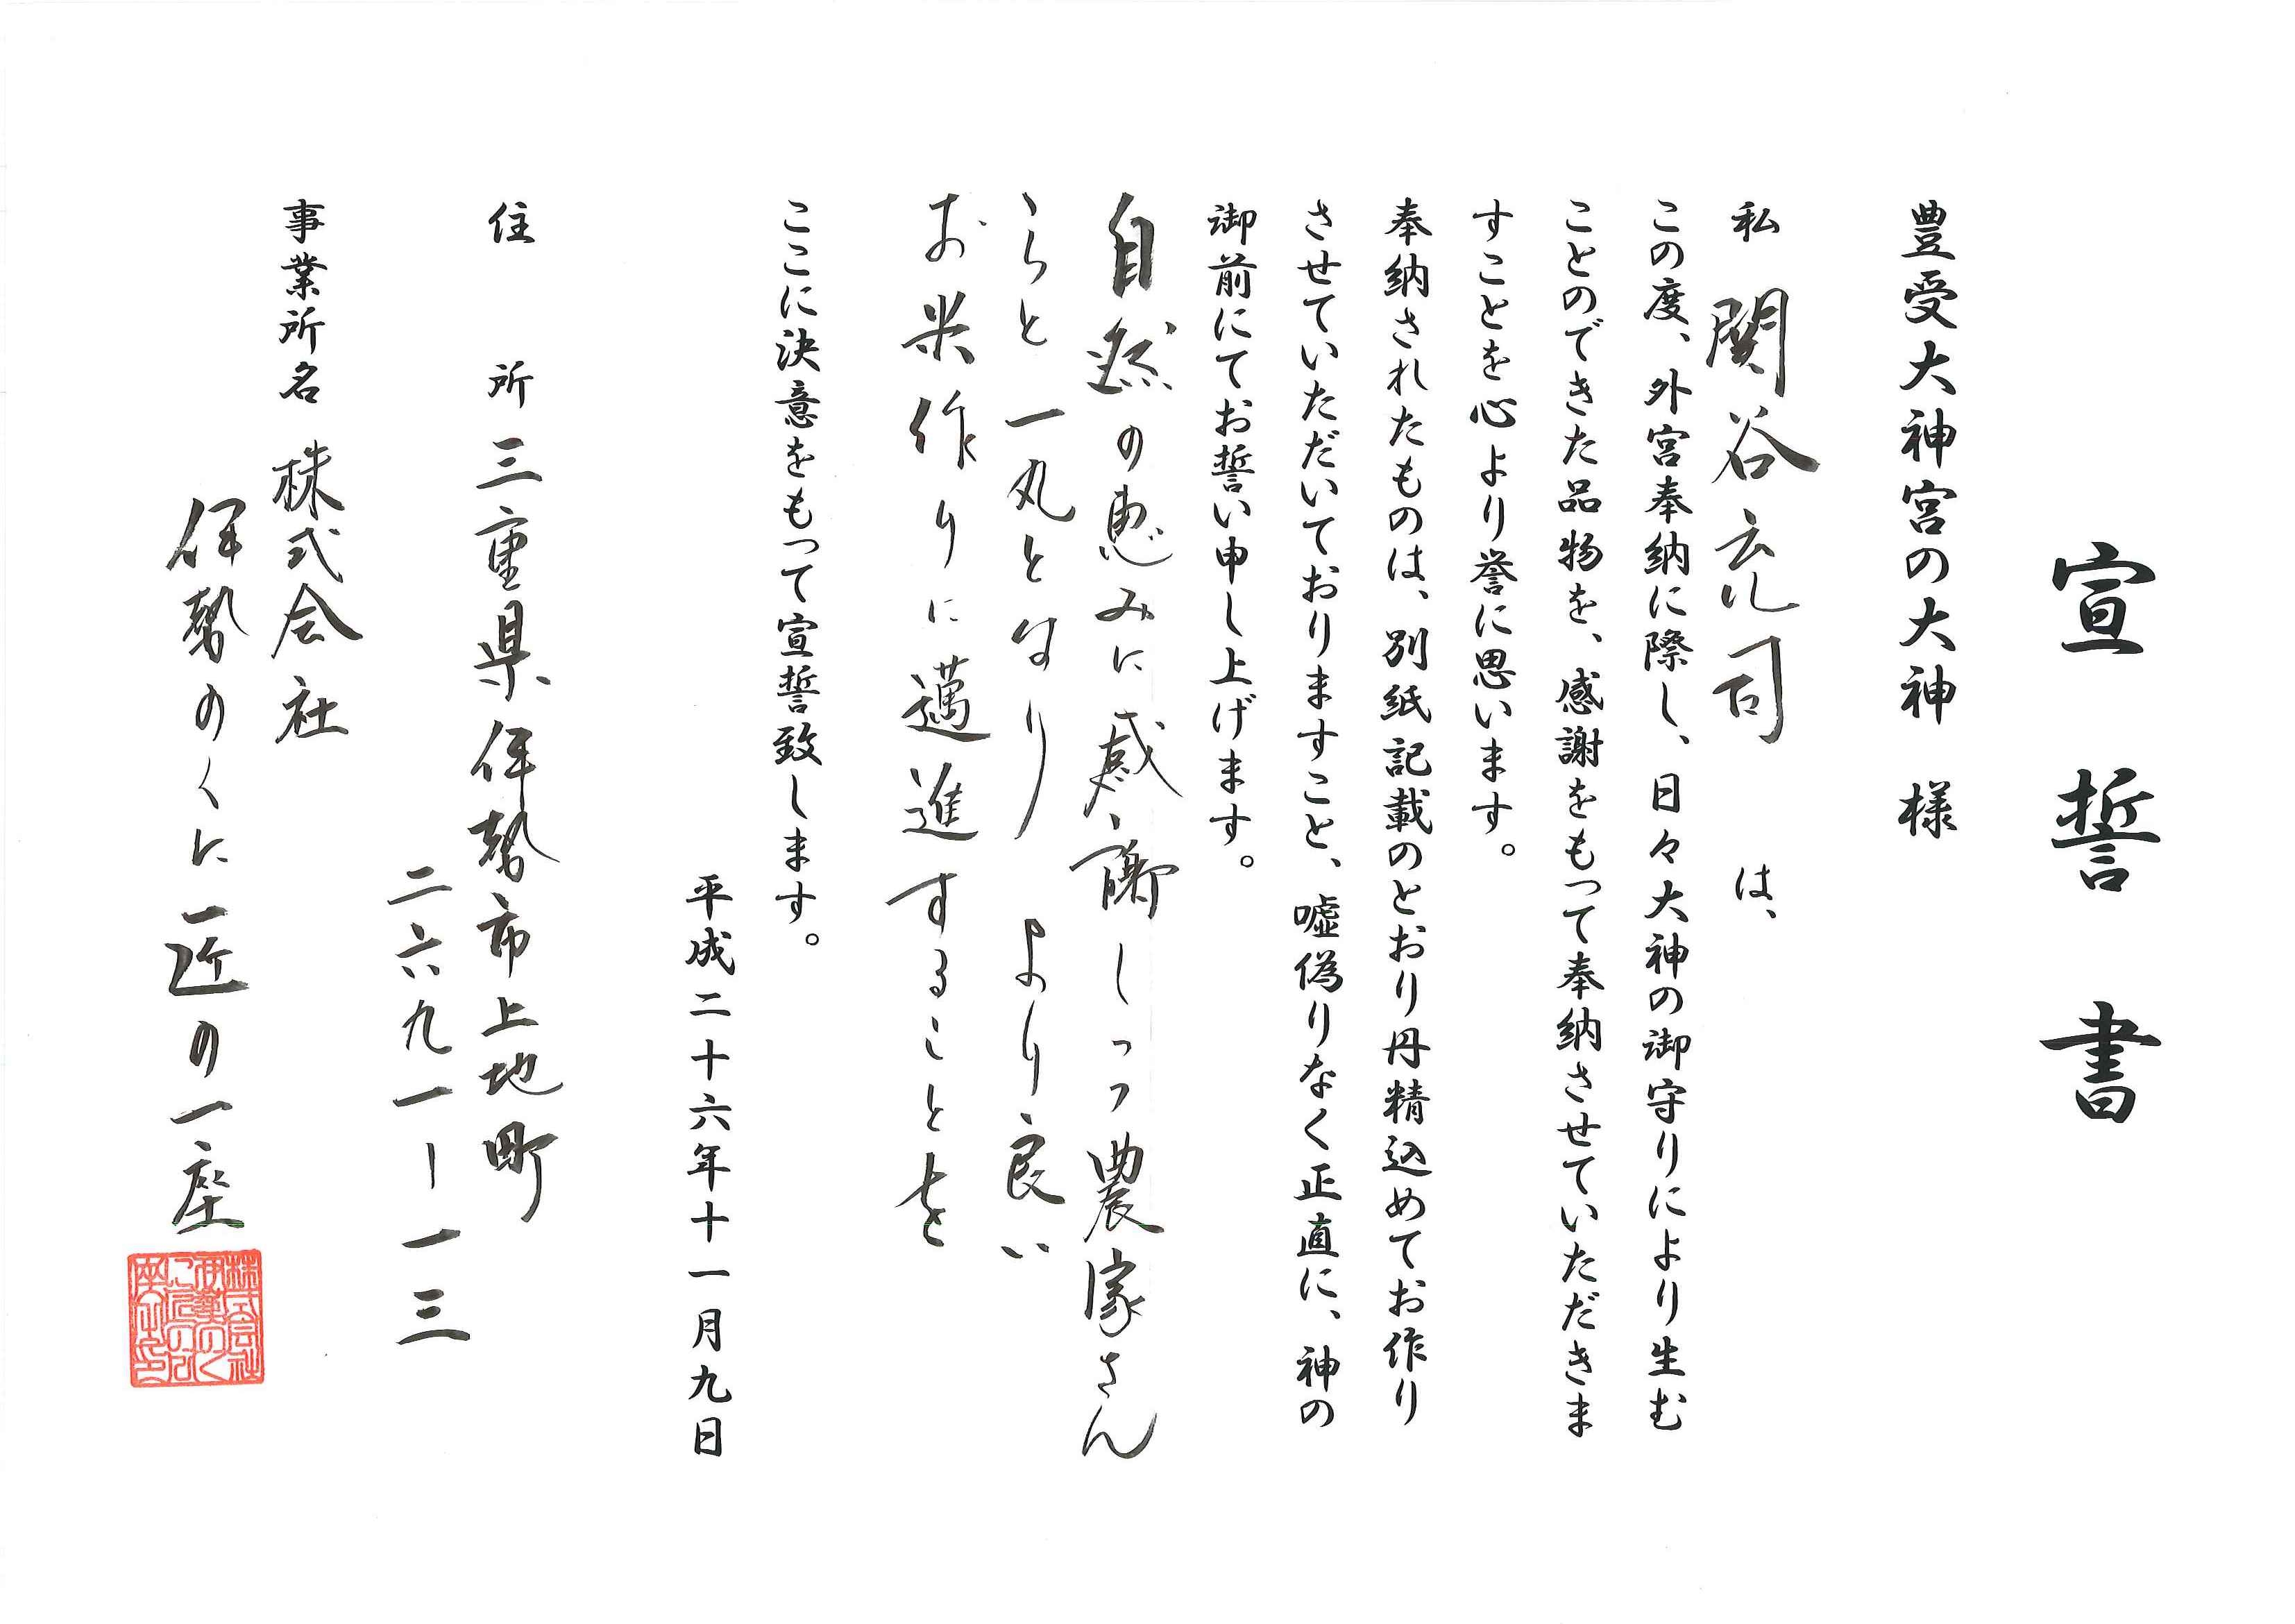 宣誓書
豊受大神宮の大神 様
私 関谷 司 は、
この度、外宮奉納に際し、日々大神の御守りにより生む
ことのできた品物を、感謝をもって奉納させていただきま
すことを心より誉に思います。
奉納されたものは、別紙記載のとおり丹精込めてお作り
させていただいておりますこと、嘘偽りなく正直に、神の
御前にてお誓い申し上げます。
自然の恵みに感謝しつつ農家さん
らと一丸となり より良い
お米作りに邁進することを
ここに決意をもって宣誓致します。
平成二十六年十一月九日
住 所 三重県伊勢市上地町
二六九一ー一三
事業所名 株式会社
伊勢のくに匠の一座